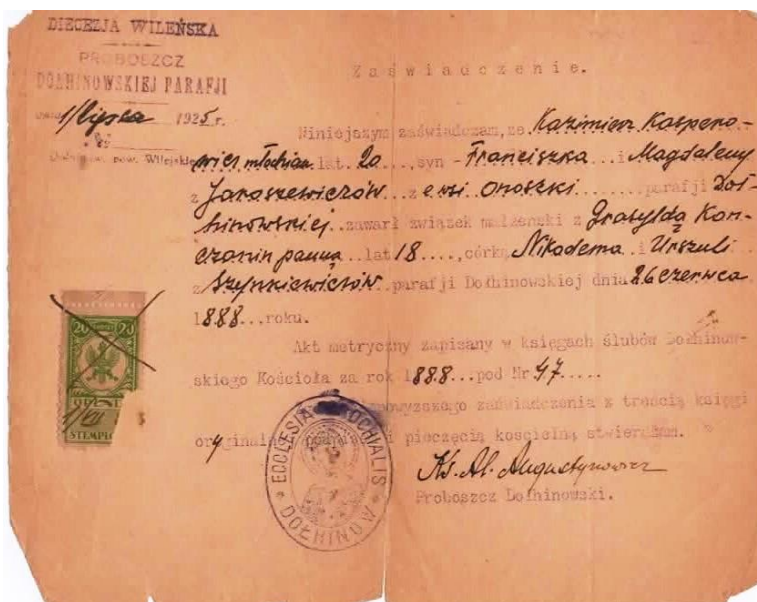 DIECEZJA WILEŃSKA
PROBOSZCZ
DOŁHINOWSKIEJ PARAFJI
1/lipca 1925 r.
pow. Wilejskie
Zaświadczenie.
Niniejszym zaświadczam, że Kazimierz Kaspero-
wicz młodzian lat 20, syn - Franciszka i Magdaleny
z Jaroszewiczów z e wsi Onoszki parafji Doł-
hinowskiej zawarł związek małżeński z Grasyldą Kon-
czanin panną lat 18, córką Nikodema i Urszuli
z Szynkiewiczów parafji Dołhinowskiej dnia 26 czerwca
1888 roku.
Akt metryczny zapisany w księgach ślubów Dołhinow-
skiego Kościoła za rok 1888 pod Nr 47
powyższego zaświadczenia z treścią księgi
i pieczęcią kościelną stwierdzam.
Ks. Al. Augustynowicz
Proboszcz Dołhinowski.
20 20
1/VII
STEMPL
ECCLESIA PAROCHIALIS
DOŁHINÓW